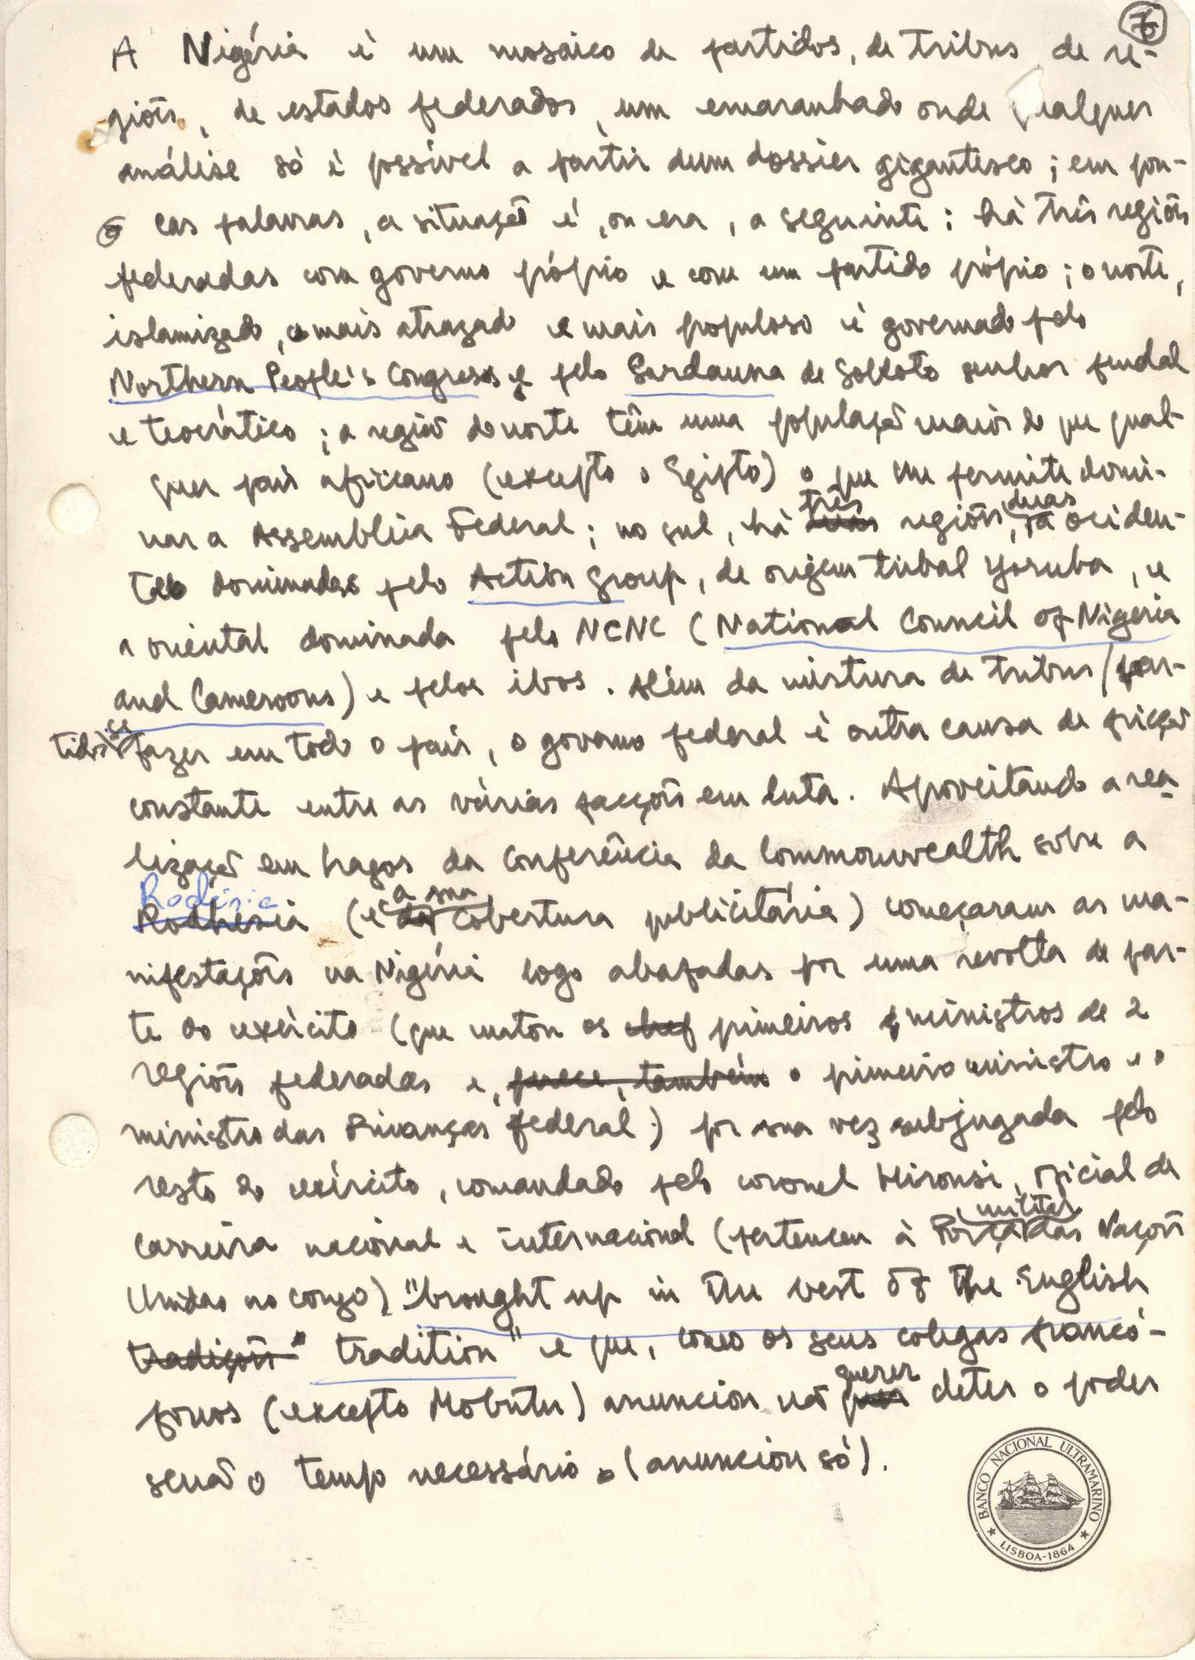 6
A Nigéria é um mosaico de partidos, de tribus de re-
giões, de estados federados, um emaranhado onde qualquer
análise só é possível a partir dum dossier gigantesco; em pou-
cas palavras, a situação é, ou era, a seguinte: há três regiões
federadas com governo própio e com um partido própio; o norte,
islamizado, o mais atrazado e mais populoso é governado pelo
Northern People's Congress e pelo Sardauna de Sokoto senhor feudal
e teocrático; a região do norte têm uma população maior do que qual-
quer país africano (excepto o Egipto) o que lhe permite domi-
nar a Assembleia Federal; no sul, há três regiões, duas a ociden-
tal dominadas pelo Action Group, de origem tribal Yoruba, e
a oriental dominada pelo NCNC (National Council of Nigéria
and Cameroons) e pelos ibos. Além da mistura de tribus / par-
tidos se fazer em todo o país, o governo federal é outra causa de fricção
constante entre as várias facções em luta. Aproveitando a rea-
lização em Lagos da Conferência da Commonwealth sobre a
Rodésia
Rodhésia (e a sua cobertura publicitária) começaram as ma-
nifestações na Nigéria logo abafadas por uma revolta de par-
te do exército (que matou os chef primeiros ministros de 2
regiões federadas e, parece, também o primeiro ministro e o
ministro das Finanças federal) por sua vez subjugada pelo
resto do exército, comandado pelo coronel Hironsi, oficial de
carreira nacional e internacional (pertenceu à Força militar das Nações
Unidas no Congo), "brought up in the best of the English
tradições" tradition" e que, como os seus colegas francó-
fonos (excepto Mobutu) anunciou não querer deter o poder
senão o tempo necessário. (anunciou só).
BANCO NACIONAL ULTRAMARINO
LISBOA-1864